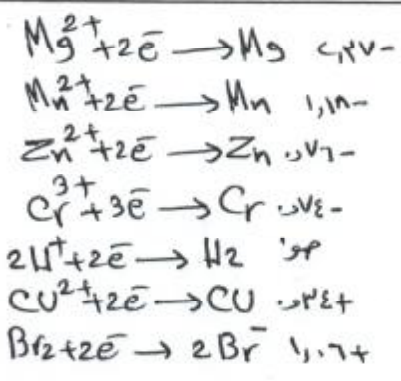 Mg²⁺+2e⁻ → Mg ٢,٣٧-
Mn²⁺+2e⁻ → Mn ١,١٨-
Zn²⁺+2e⁻ → Zn ٠,٧٦-
Cr³⁺+3e⁻ → Cr ٠,٧٤-
2H⁺+2e⁻ → H2 صفر
CU²⁺+2e⁻ → CU ٠,٣٤+
Br2+2e⁻ → 2Br⁻ ١,٠٦+